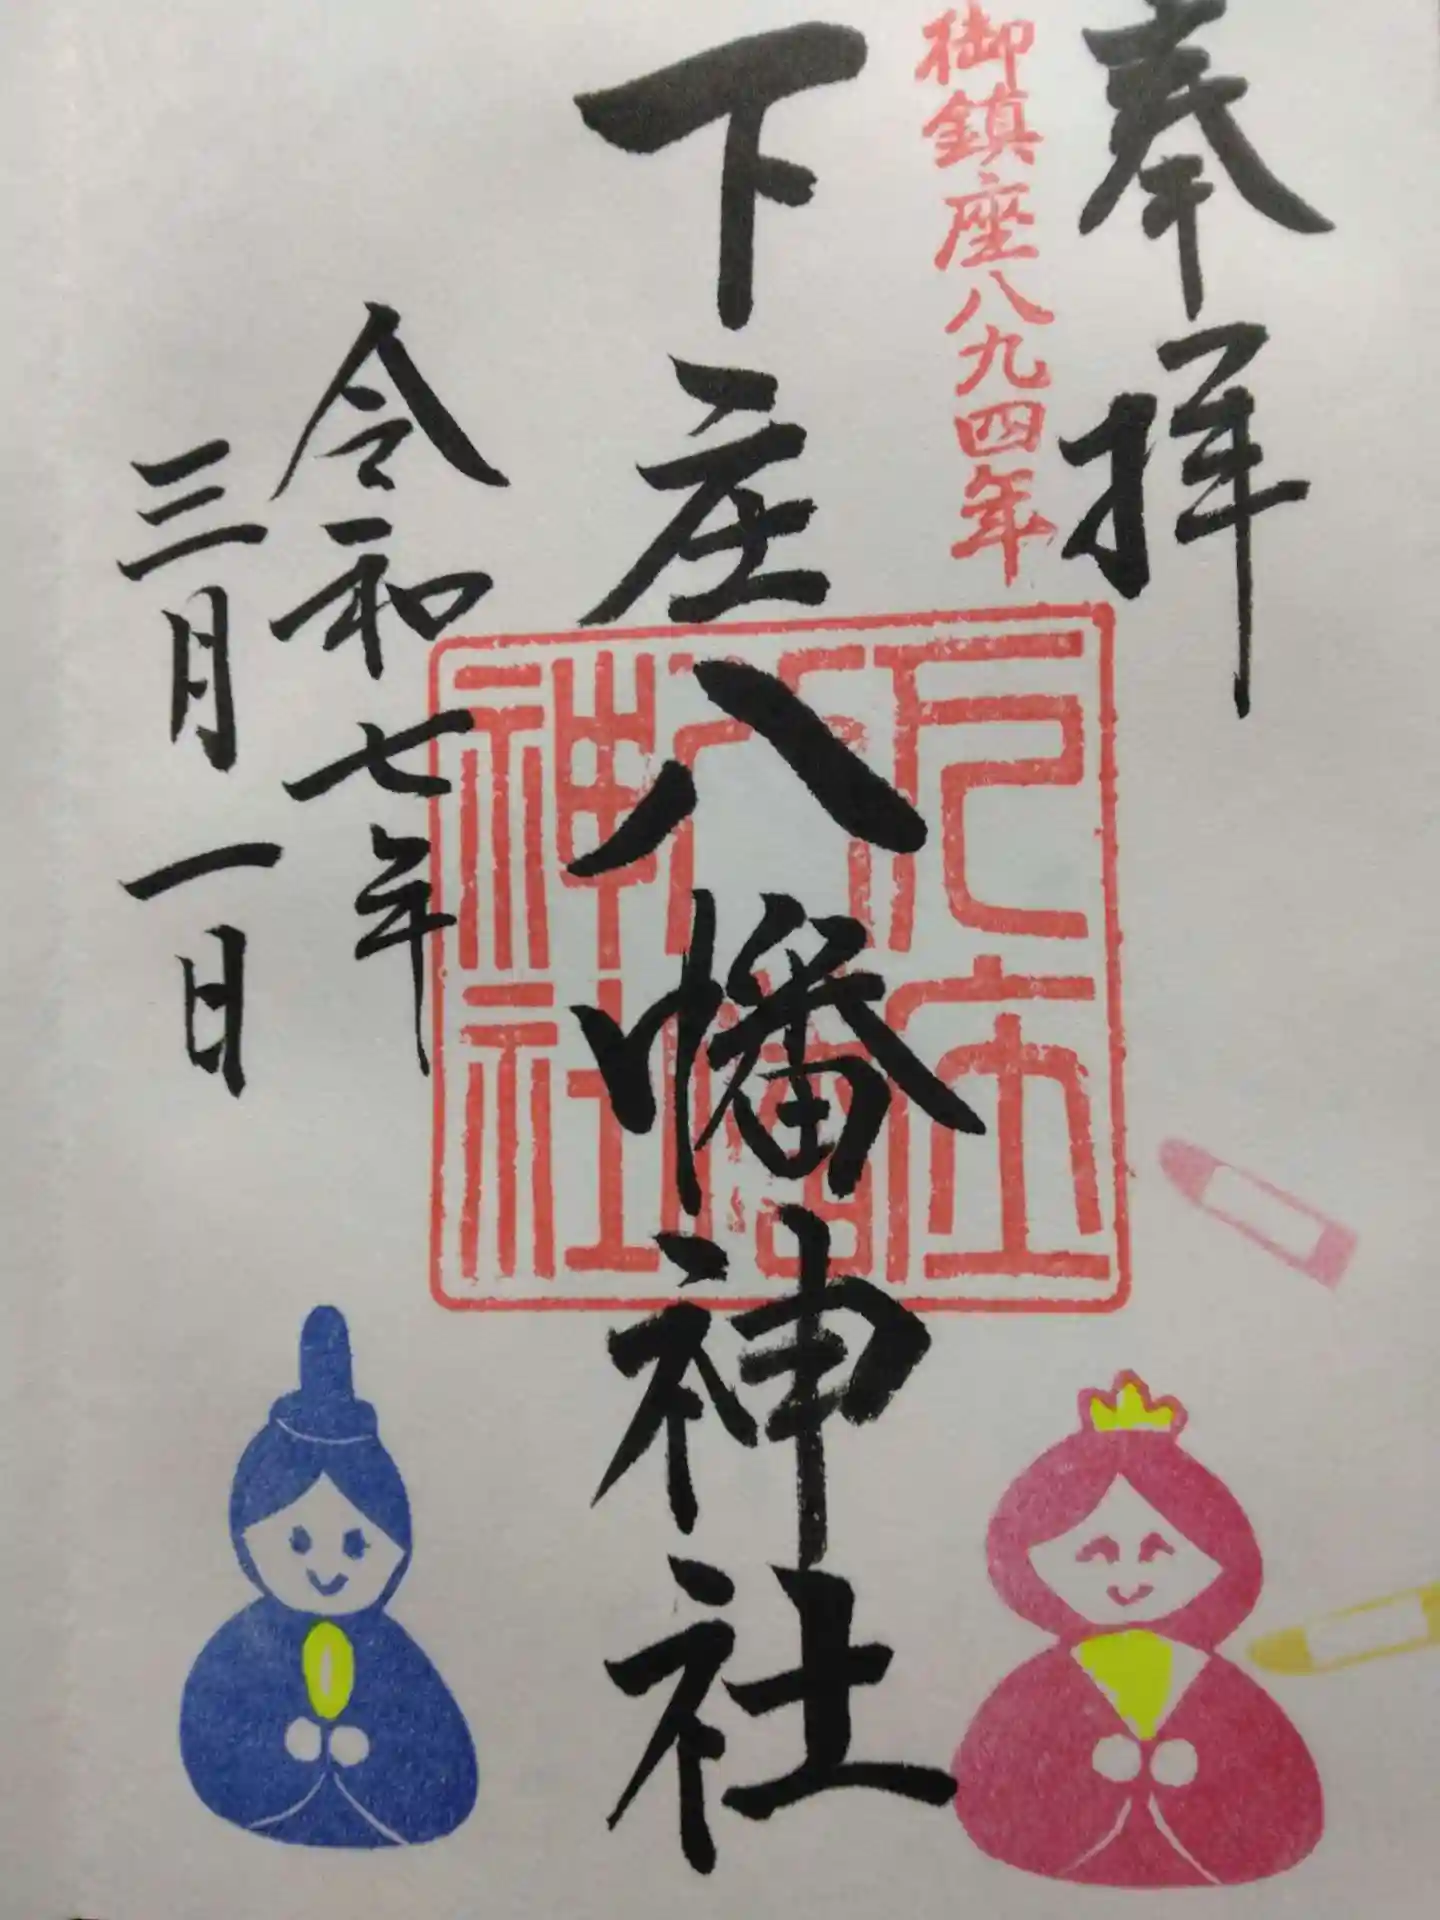 奉拝
御鎮座八九四年
下庄八幡神社
下庄
八幡
神社
令和七年
三月一日